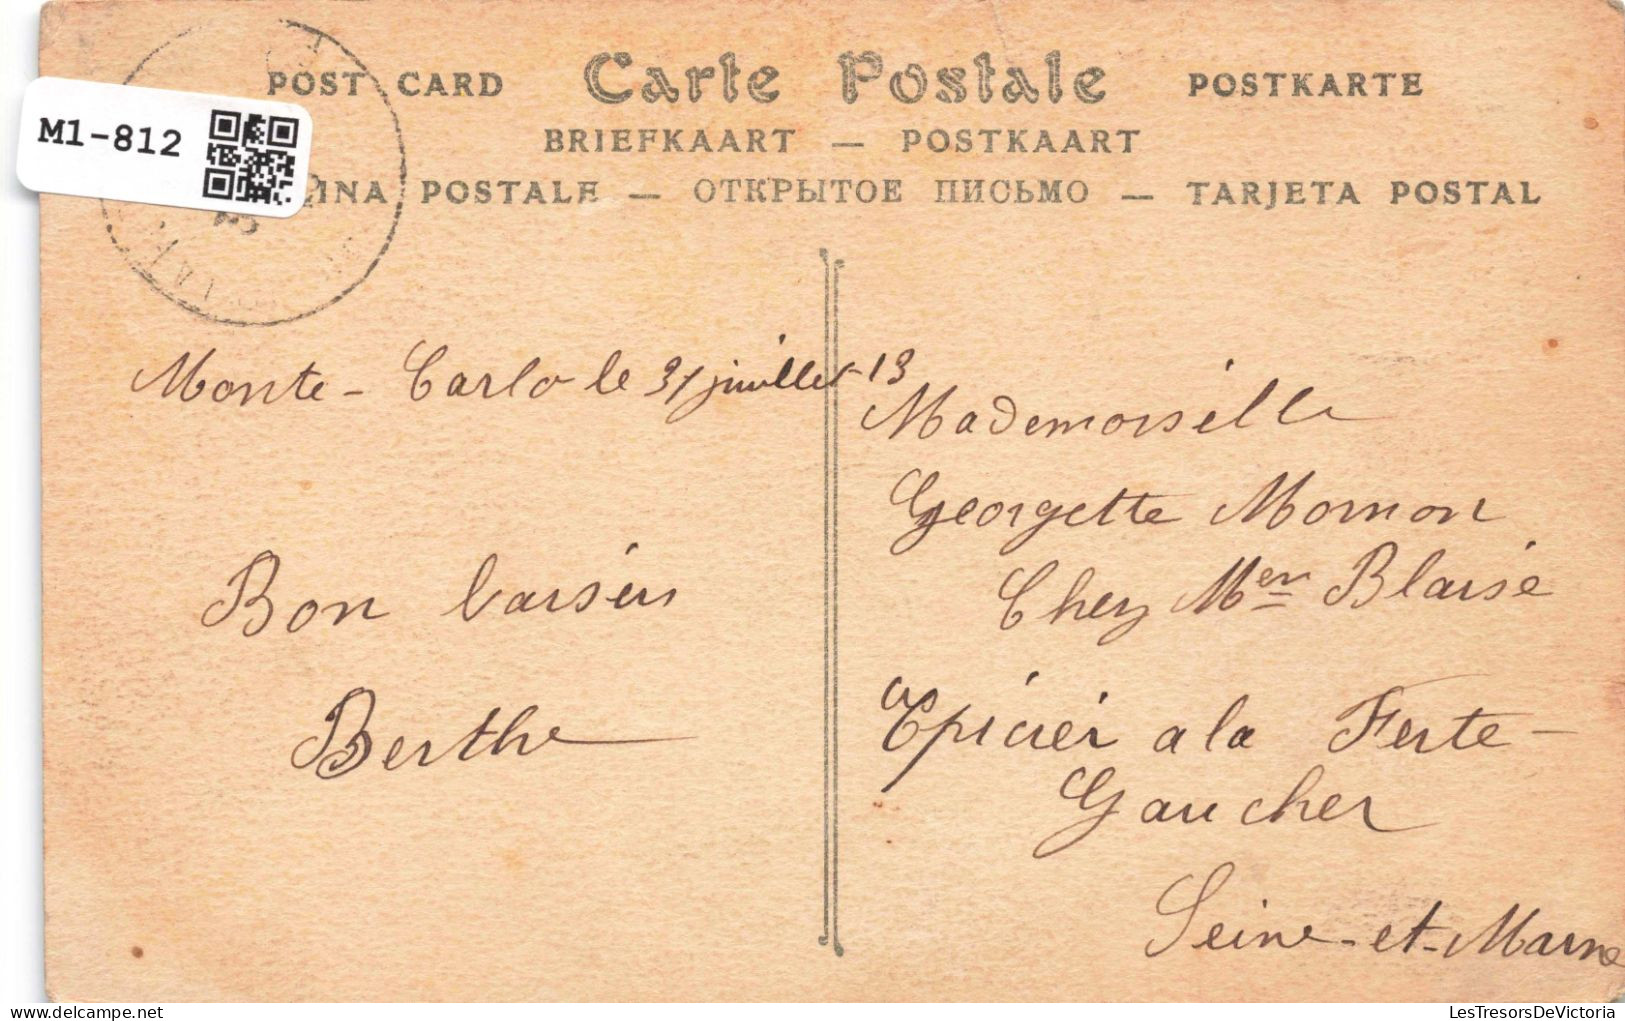 M1-812
POST CARD Carte Postale POSTKARTE
BRIEFKAART — POSTKAART
INA POSTALE — ОТКРЫТОЕ ПИСЬМО — TARJETA POSTAL
Monte-Carlo le 31 juillet 13
Bon baisers
Berthe
Mademoiselle
Georgette Mornon
Chez Mer Blaise
Epicier a la Ferte-
Gaucher
Seine-et-Marne
LesTresorsDeVictoria